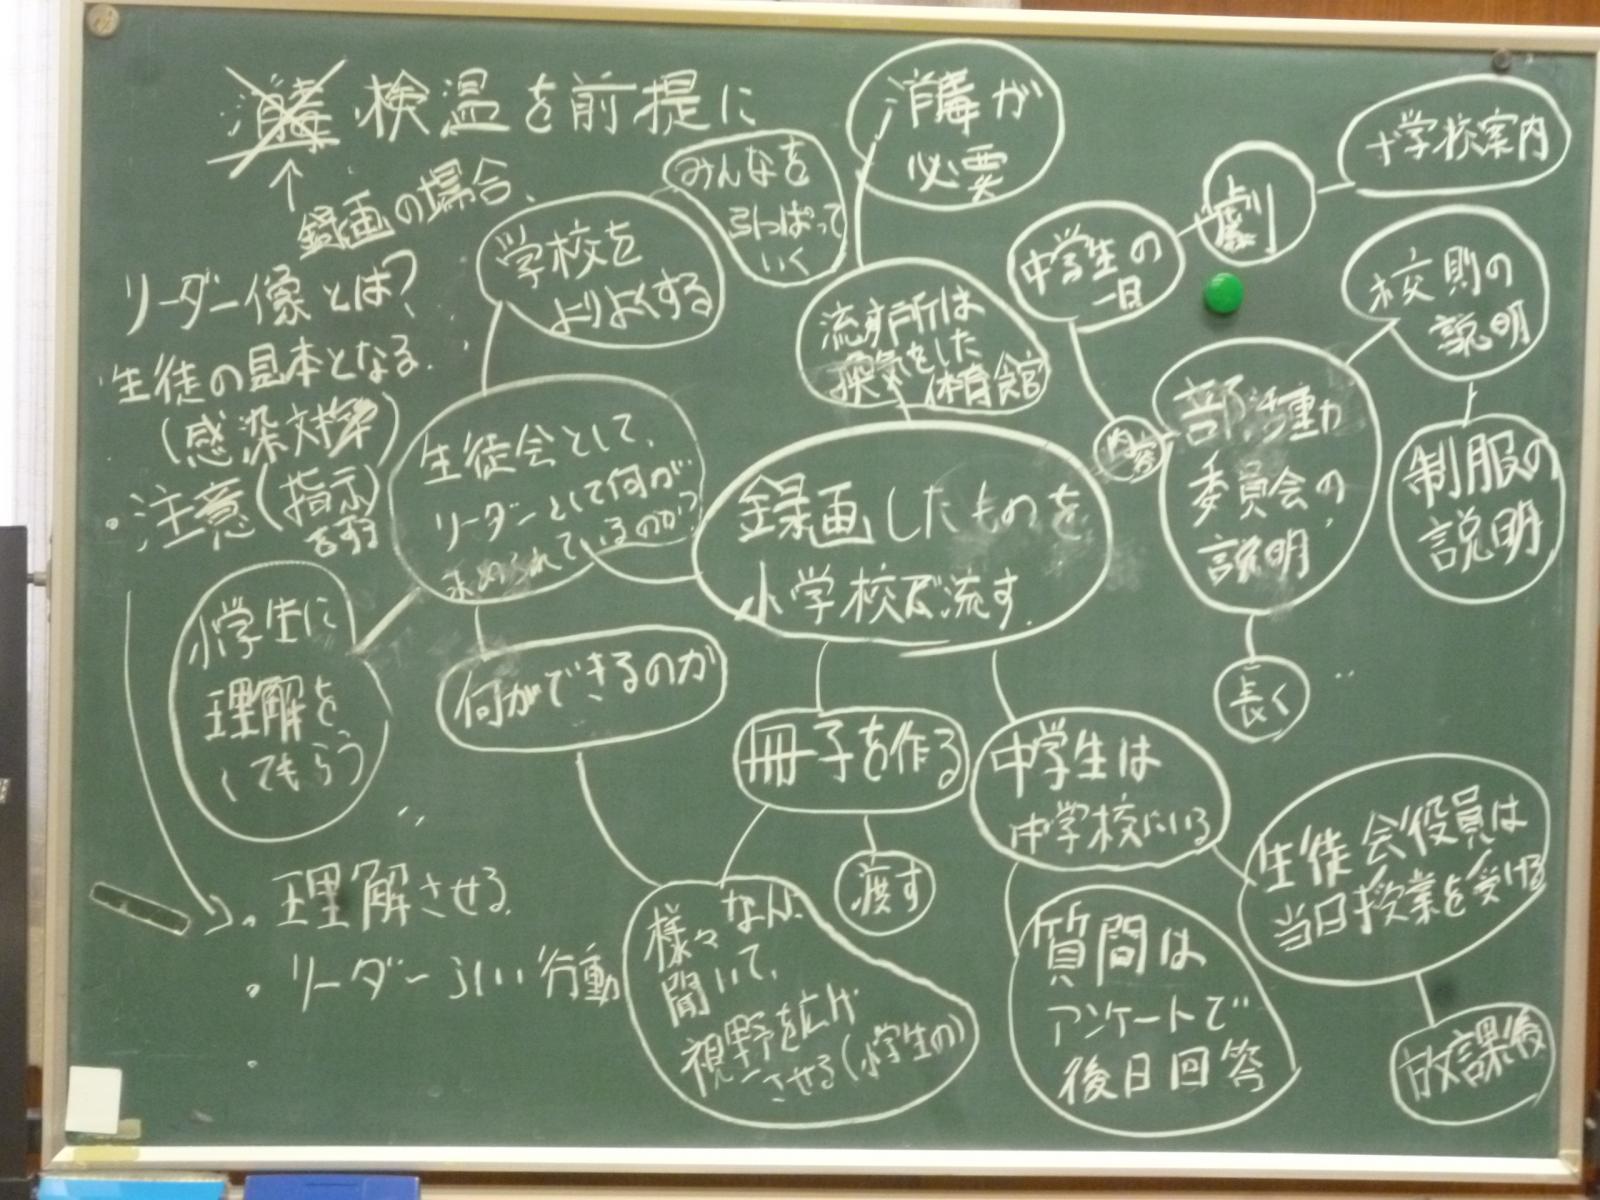 消毒 検温を前提に
↑
録画の場合、
リーダー像とは?
生徒の見本となる。
(感染対策)
・注意(指示)
する
学校を
よりよくする
みんなを
引っぱって
いく
生徒会として、
リーダーとして何が
求められているのか?
小学生に
理解を
してもらう
何ができるのか
・理解させる。
・リーダーらしい行動
・
消毒が
必要
流す所は
換気をした
体育館
録画したものを
小学校で流す。
冊子を作る
渡す
様々なんか
聞いて、
視野を広げ
させる(小学生の)
中学生は
中学校にいる
質問は
アンケートで
後日回答
生徒会役員は
当日授業を受ける
放課後
内容
中学生の
一日
劇
学校案内
部活動
委員会の
説明
長く
校則の
説明
制服の
説明